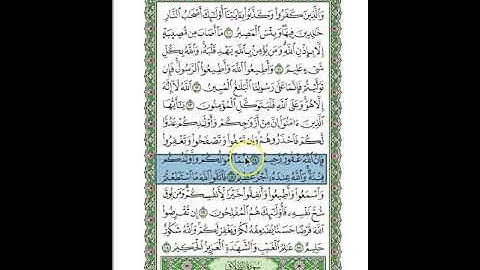 وَالَّذِينَ كَفَرُوا وَكَذَّبُوا بِآيَاتِنَا أُولَٰئِكَ أَصْحَابُ النَّارِ
خَالِدِينَ فِيهَا وَبِئْسَ الْمَصِيرُ ۝ مَا أَصَابَ مِن مُّصِيبَةٍ
إِلَّا بِإِذْنِ اللَّهِ وَمَن يُؤْمِن بِاللَّهِ يَهْدِ قَلْبَهُ وَاللَّهُ بِكُلِّ
شَيْءٍ عَلِيمٌ ۝ وَأَطِيعُوا اللَّهَ وَأَطِيعُوا الرَّسُولَ فَإِن
تَوَلَّيْتُمْ فَإِنَّمَا عَلَىٰ رَسُولِنَا الْبَلَاغُ الْمُبِينُ ۝ اللَّهُ لَا إِلَٰهَ
إِلَّا هُوَ وَعَلَى اللَّهِ فَلْيَتَوَكَّلِ الْمُؤْمِنُونَ ۝ يَا أَيُّهَا
الَّذِينَ آمَنُوا إِنَّ مِنْ أَزْوَاجِكُمْ وَأَوْلَادِكُمْ عَدُوًّا
لَّكُمْ فَاحْذَرُوهُمْ وَإِن تَعْفُوا وَتَصْفَحُوا وَتَغْفِرُوا
فَإِنَّ اللَّهَ غَفُورٌ رَّحِيمٌ ۝ إِنَّمَا أَمْوَالُكُمْ وَأَوْلَادُكُمْ
فِتْنَةٌ وَاللَّهُ عِندَهُ أَجْرٌ عَظِيمٌ ۝ فَاتَّقُوا اللَّهَ مَا اسْتَطَعْتُمْ
وَاسْمَعُوا وَأَطِيعُوا وَأَنفِقُوا خَيْرًا لِّأَنفُسِكُمْ وَمَن يُوقَ
شُحَّ نَفْسِهِ فَأُولَٰئِكَ هُمُ الْمُفْلِحُونَ ۝ إِن تُقْرِضُوا
اللَّهَ قَرْضًا حَسَنًا يُضَاعِفْهُ لَكُمْ وَيَغْفِرْ لَكُمْ وَاللَّهُ شَكُورٌ
حَلِيمٌ ۝ عَالِمُ الْغَيْبِ وَالشَّهَادَةِ الْعَزِيزُ الْحَكِيمُ ۝
سُورَةُ الطَّلَاقِ